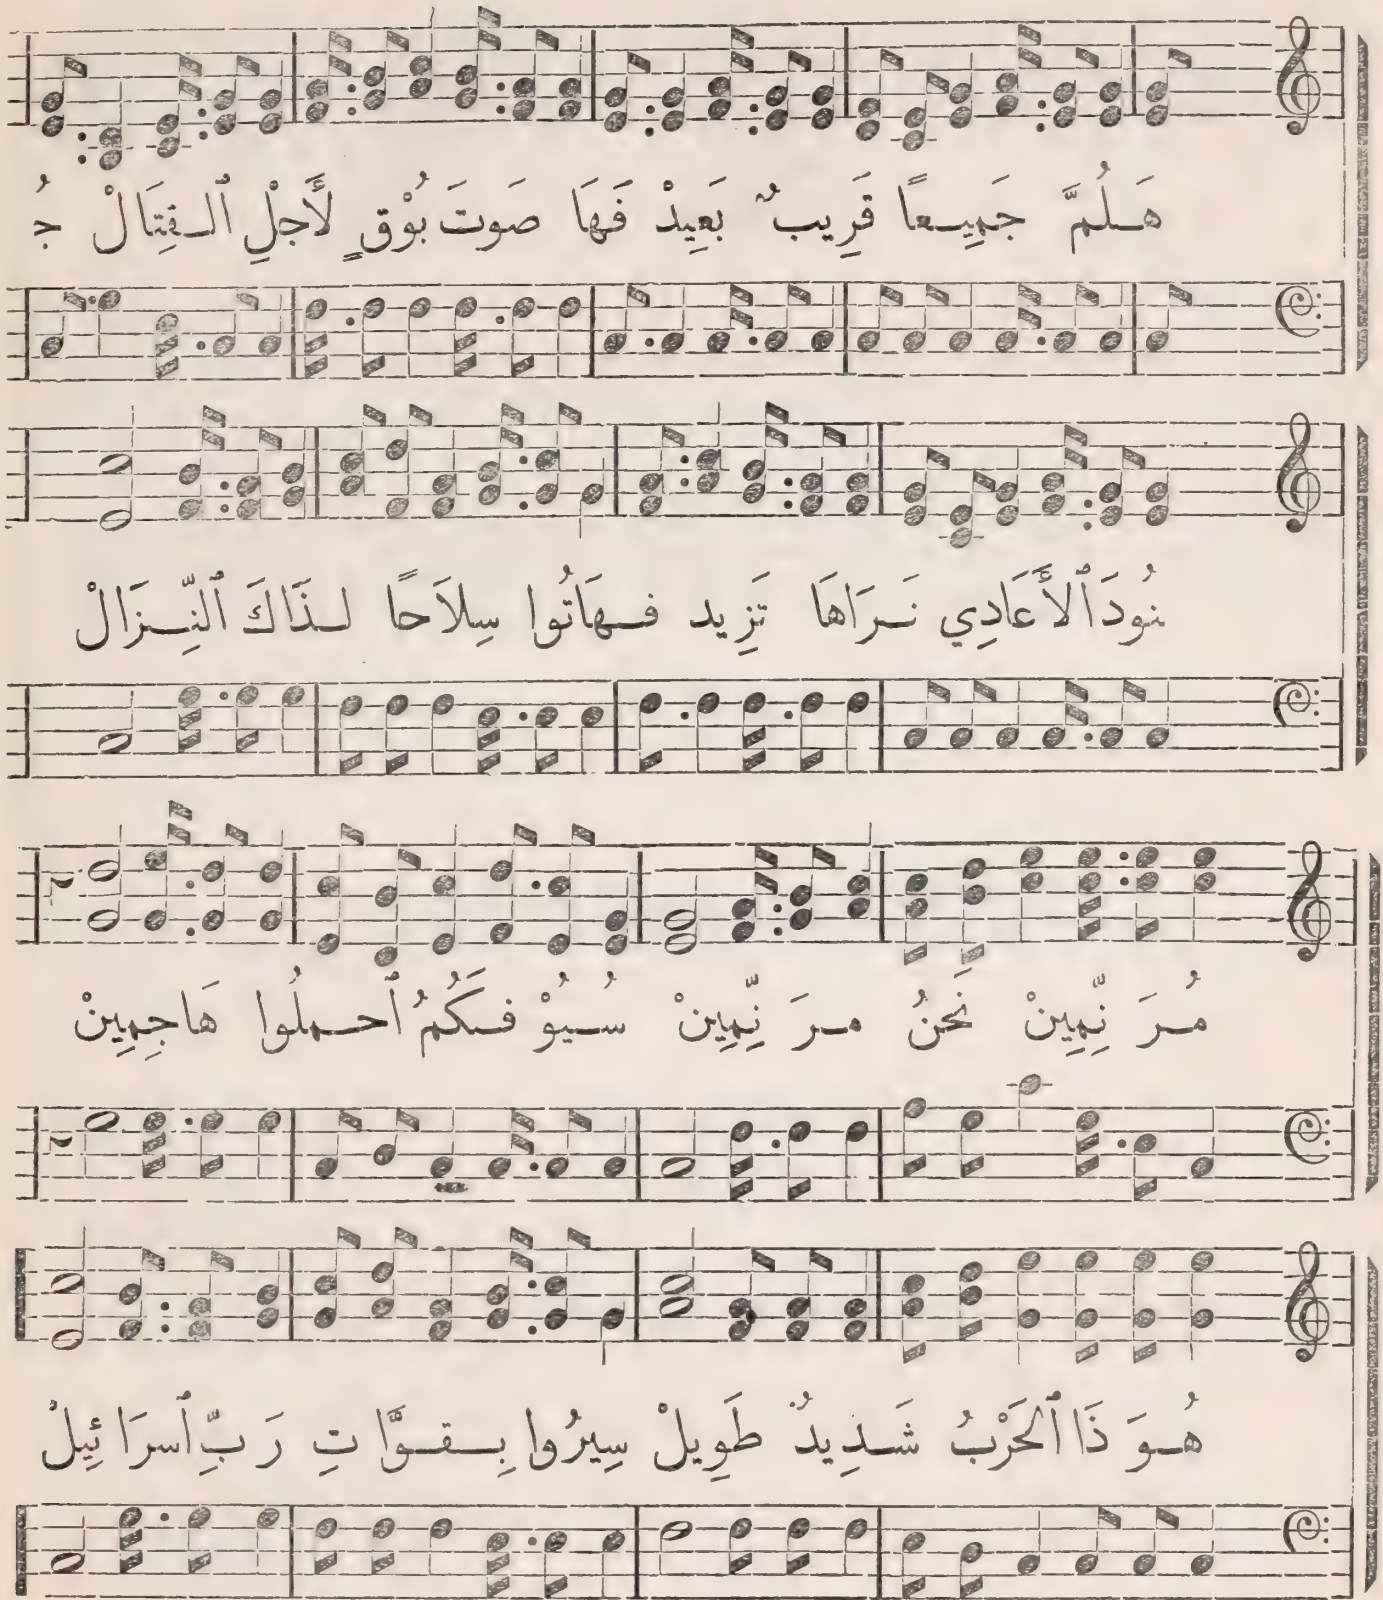 هَـلُمَّ جَمِيـعًا قَرِيبٌ بَعِيدْ فَهَا صَوتَ بُوْقٍ لأَجلِ ٱلـقِتَالْ جُـ
ـنُودَ ٱلأَعَادِي نَـرَاهَا تَزِيد فـهَاتُوا سِلاَحًا لـذَاكَ ٱلنِّـزَالْ
مُـرَ نِّمِينْ نَحْنُ مـرَ نِّمِينْ سُـيُوْ فـكُمُ ٱحـملُوا هَاجِمِينْ
هُـوَ ذَا ٱلحَرْبُ شَـدِيدٌ طَوِيلْ سِيرُوا بِـقـوَّاتِ رَبِّ ٱسرَائِيلْ